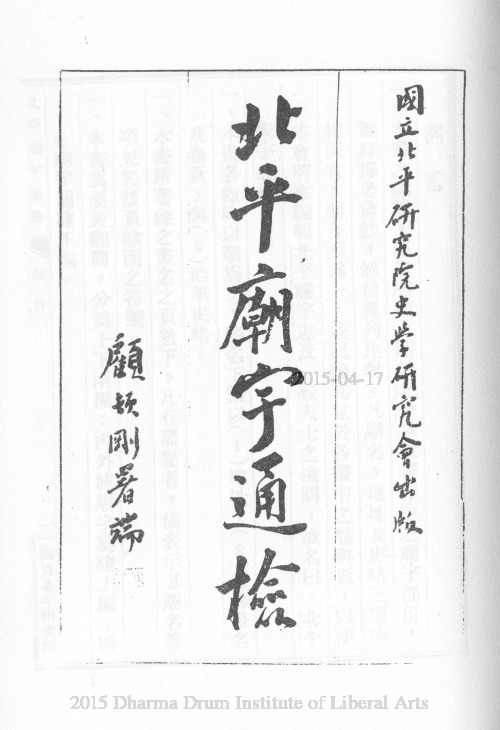 國立北平研究院史學研究會出版
北平廟宇通檢
顧頡剛署端
2015-04-17
1
2015 Dharma Drum Institute of Liberal Arts